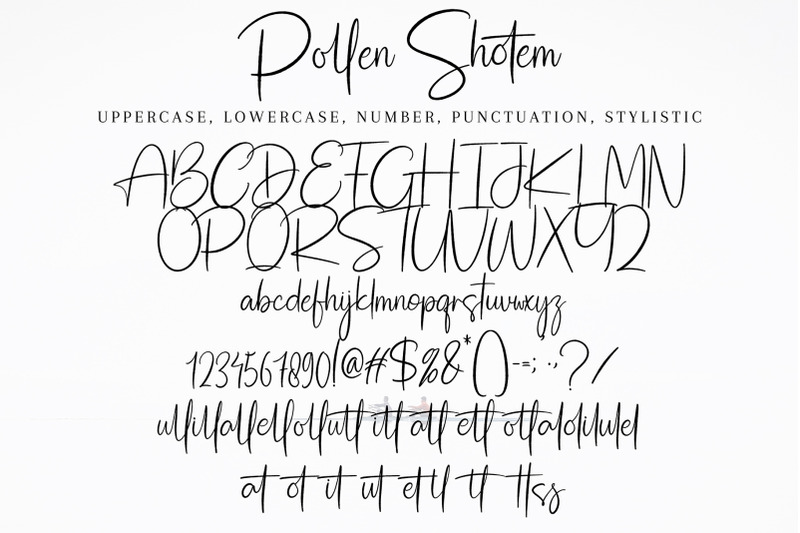 Pollen Shotem
UPPERCASE, LOWERCASE, NUMBER, PUNCTUATION, STYLISTIC
ABCDEFGHIJKLMN
OPQRSTUVWXYZ
abcdefhijklmnopqrstuvwxyz
1234567890!@#$%&*()-=;:.,?/
ullillallellollutt itt att ett ottalolilulel
at ot it ut et tl tt ttss